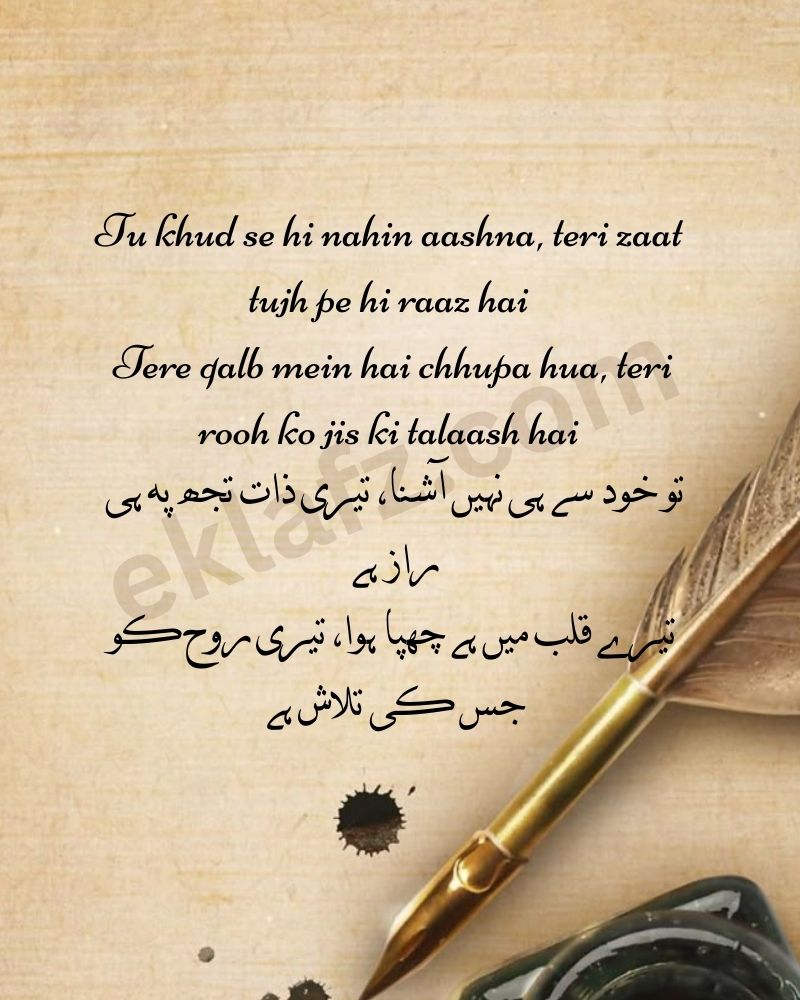 Tu khud se hi nahin aashna, teri zaat
tujh pe hi raaz hai
Tere qalb mein hai chhupa hua, teri
rooh ko jis ki talaash hai
تو خود سے ہی نہیں آشنا، تیری ذات تجھ پہ ہی
راز ہے
تیرے قلب میں ہے چھپا ہوا، تیری روح کو
جس کی تلاش ہے
eklafz.com